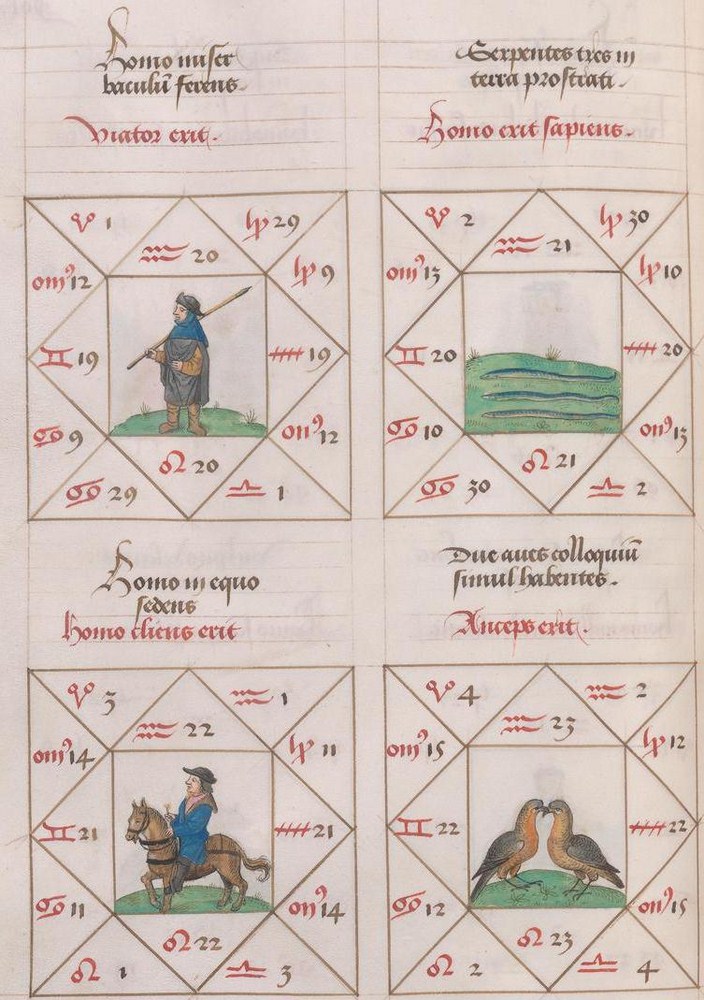 Homo miser
baculū ferens.
Viator erit.
♈ 1 ♑ 29
♒ 20
♉ 12 ♑ 9
♊ 19 ♐ 19
♋ 9 ♏ 12
♌ 20
♋ 29 ♎ 1
Serpentes tres in
terra prostrati.
Homo erit sapiens.
♈ 2 ♑ 30
♒ 21
♉ 13 ♑ 10
♊ 20 ♐ 20
♋ 10 ♏ 13
♌ 21
♋ 30 ♎ 2
Homo in equo
sedens
Homo cliens erit
♈ 3 ♒ 1
♒ 22
♉ 14 ♑ 11
♊ 21 ♐ 21
♋ 11 ♏ 14
♌ 22
♌ 1 ♎ 3
Due aues colloquiū
simul habentes.
Anceps erit.
♈ 4 ♒ 2
♒ 23
♉ 15 ♑ 12
♊ 22 ♐ 22
♋ 12 ♏ 15
♌ 23
♌ 2 ♎ 4